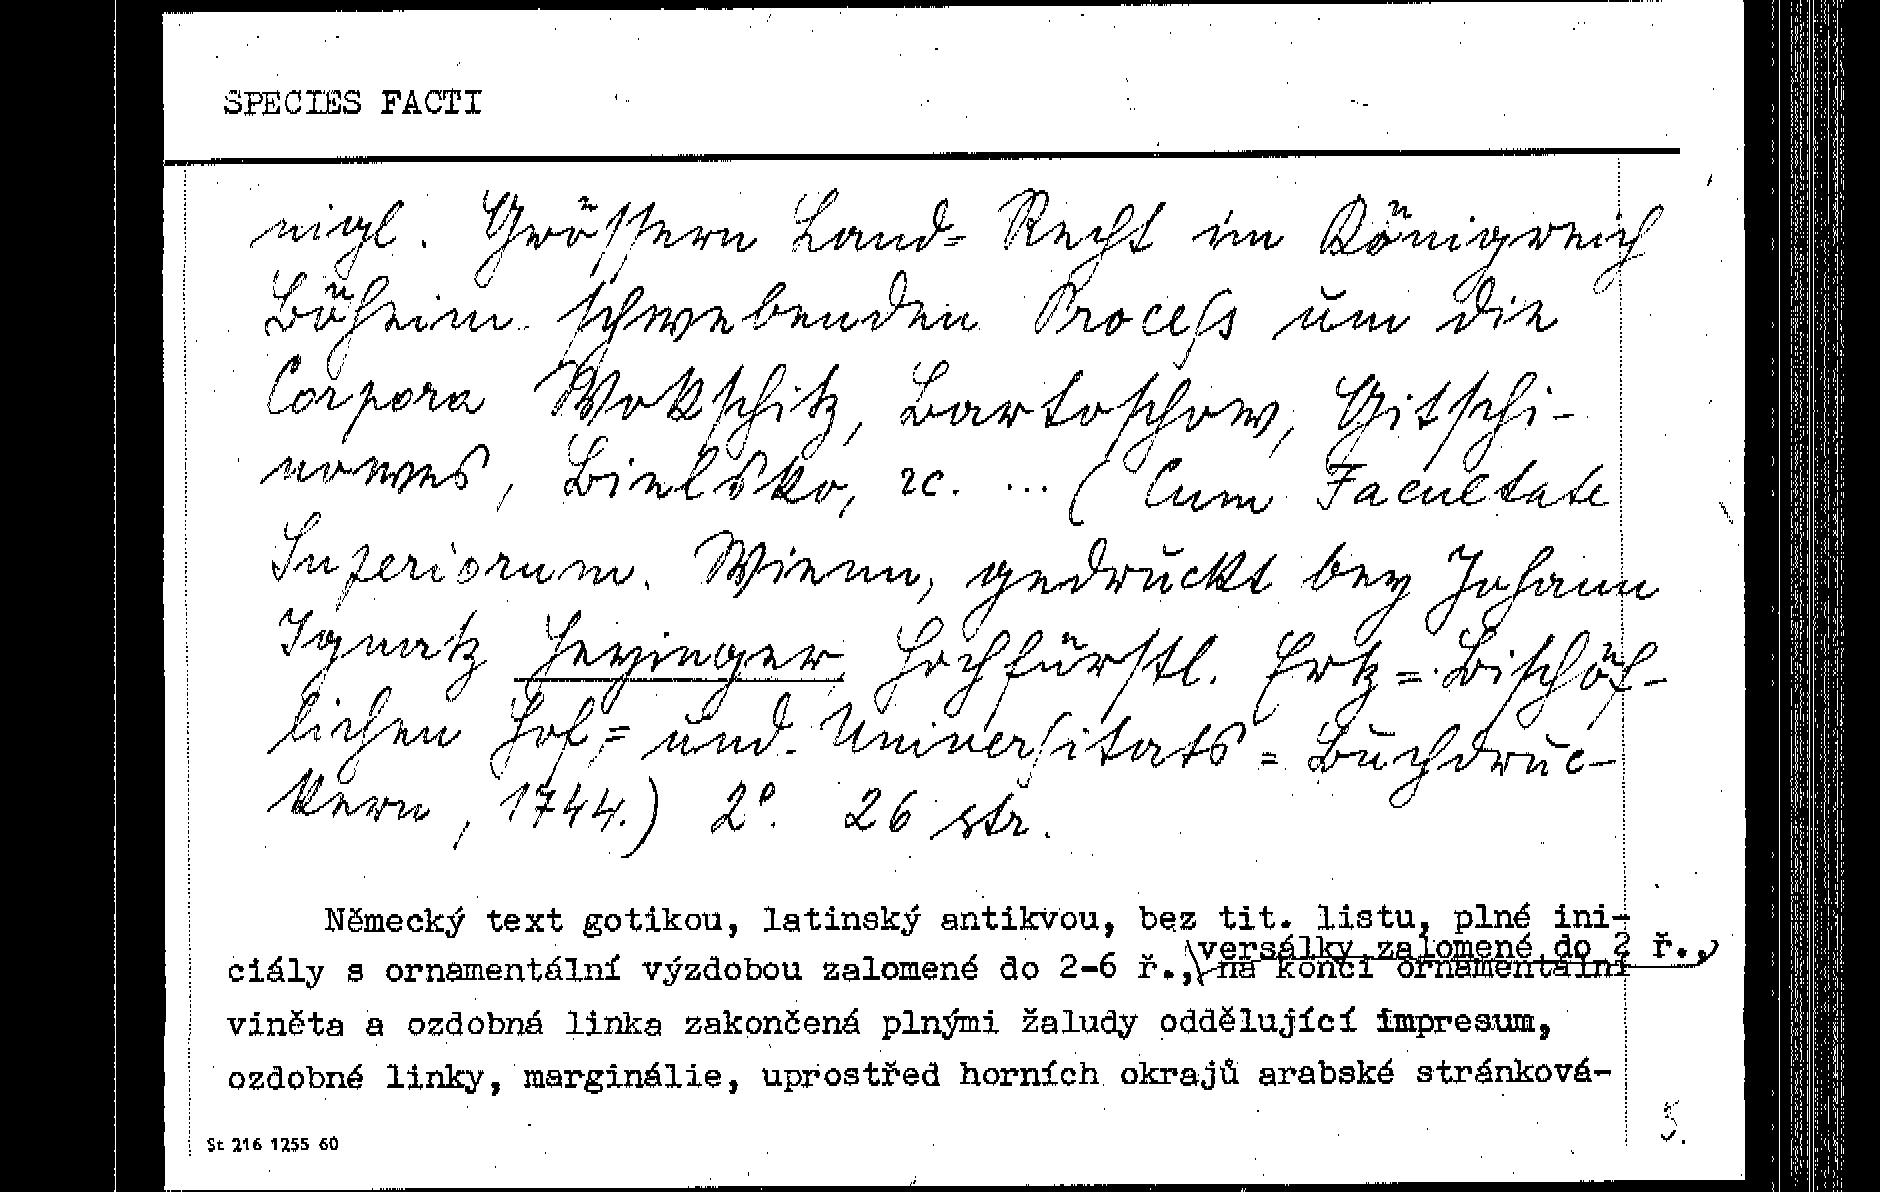 SPECIES FACTI
nigl. Grössern Land= Recht im Königreich
Böheim schwebenden Process um die
Corpora Wokschitz, Bartoschow, Gitschi-
nowes, Bielsko, ꝛc. ... (Cum Facultate
Superiorum. Wienn, gedruckt bey Johann
Ignatz Heyinger Hochfürstl. Ertz= Bischöf-
lichen Hof= und Universitats= Buchdruc-
kern, 1744.) 2°. 26 str.
Německý text gotikou, latinský antikvou, bez tit. listu, plné ini-
versálky zalomené do 2 ř.,
ciály s ornamentální výzdobou zalomené do 2-6 ř., na konci ornamentální
viněta a ozdobná linka zakončená plnými žaludy oddělující impresum,
ozdobné linky, marginálie, uprostřed horních okrajů arabské stránková-
5.
St 216 1255 60